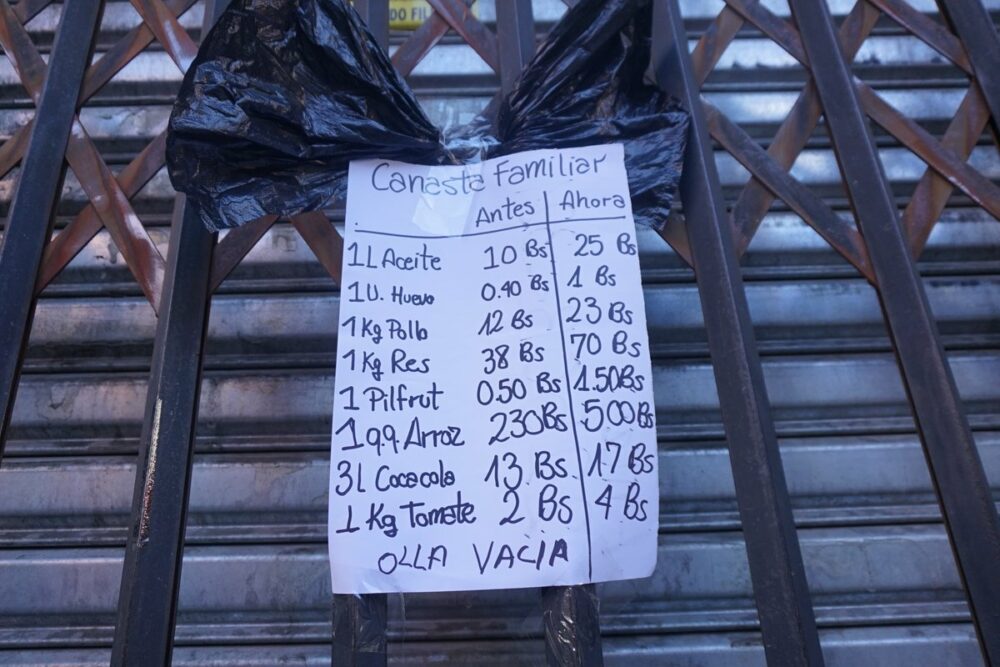 DO FIL
Canasta Familiar
Antes Ahora
1L Aceite 10 Bs 25 Bs
1U. Huevo 0.40 Bs 1 Bs
1Kg Pollo 12 Bs 23 Bs
1Kg Res 38 Bs 70 Bs
1 Pilfrut 0.50 Bs 1.50Bs
1qq Arroz 230Bs 500Bs
3L Cocacola 13 Bs. 17 Bs
1 Kg Tomate 2 Bs 4 Bs
OLLA VACIA